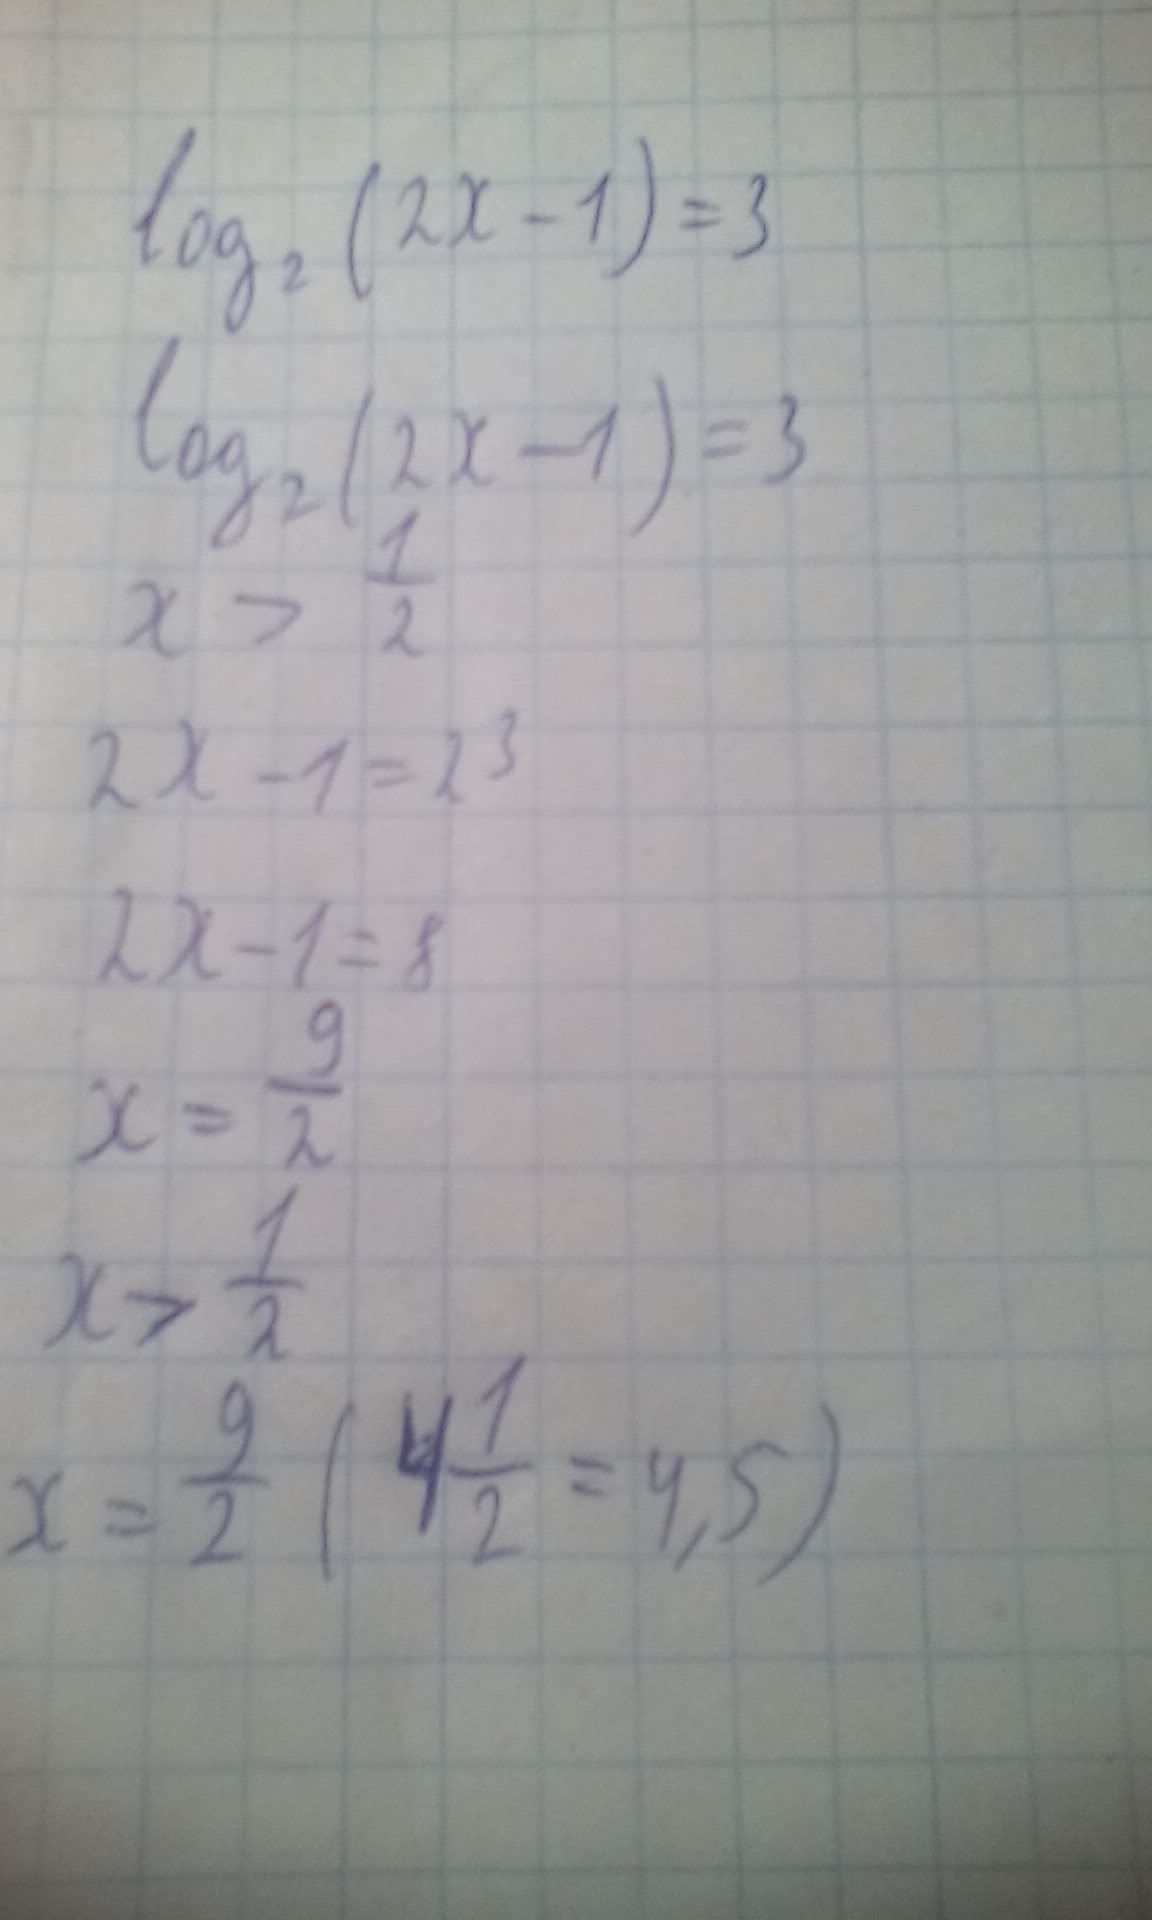 log₂(2x-1)=3
log₂(2x-1)=3
x > 1/2
2x-1=2³
2x-1=8
x = 9/2
x > 1/2
x = 9/2 (4 1/2 = 4,5)